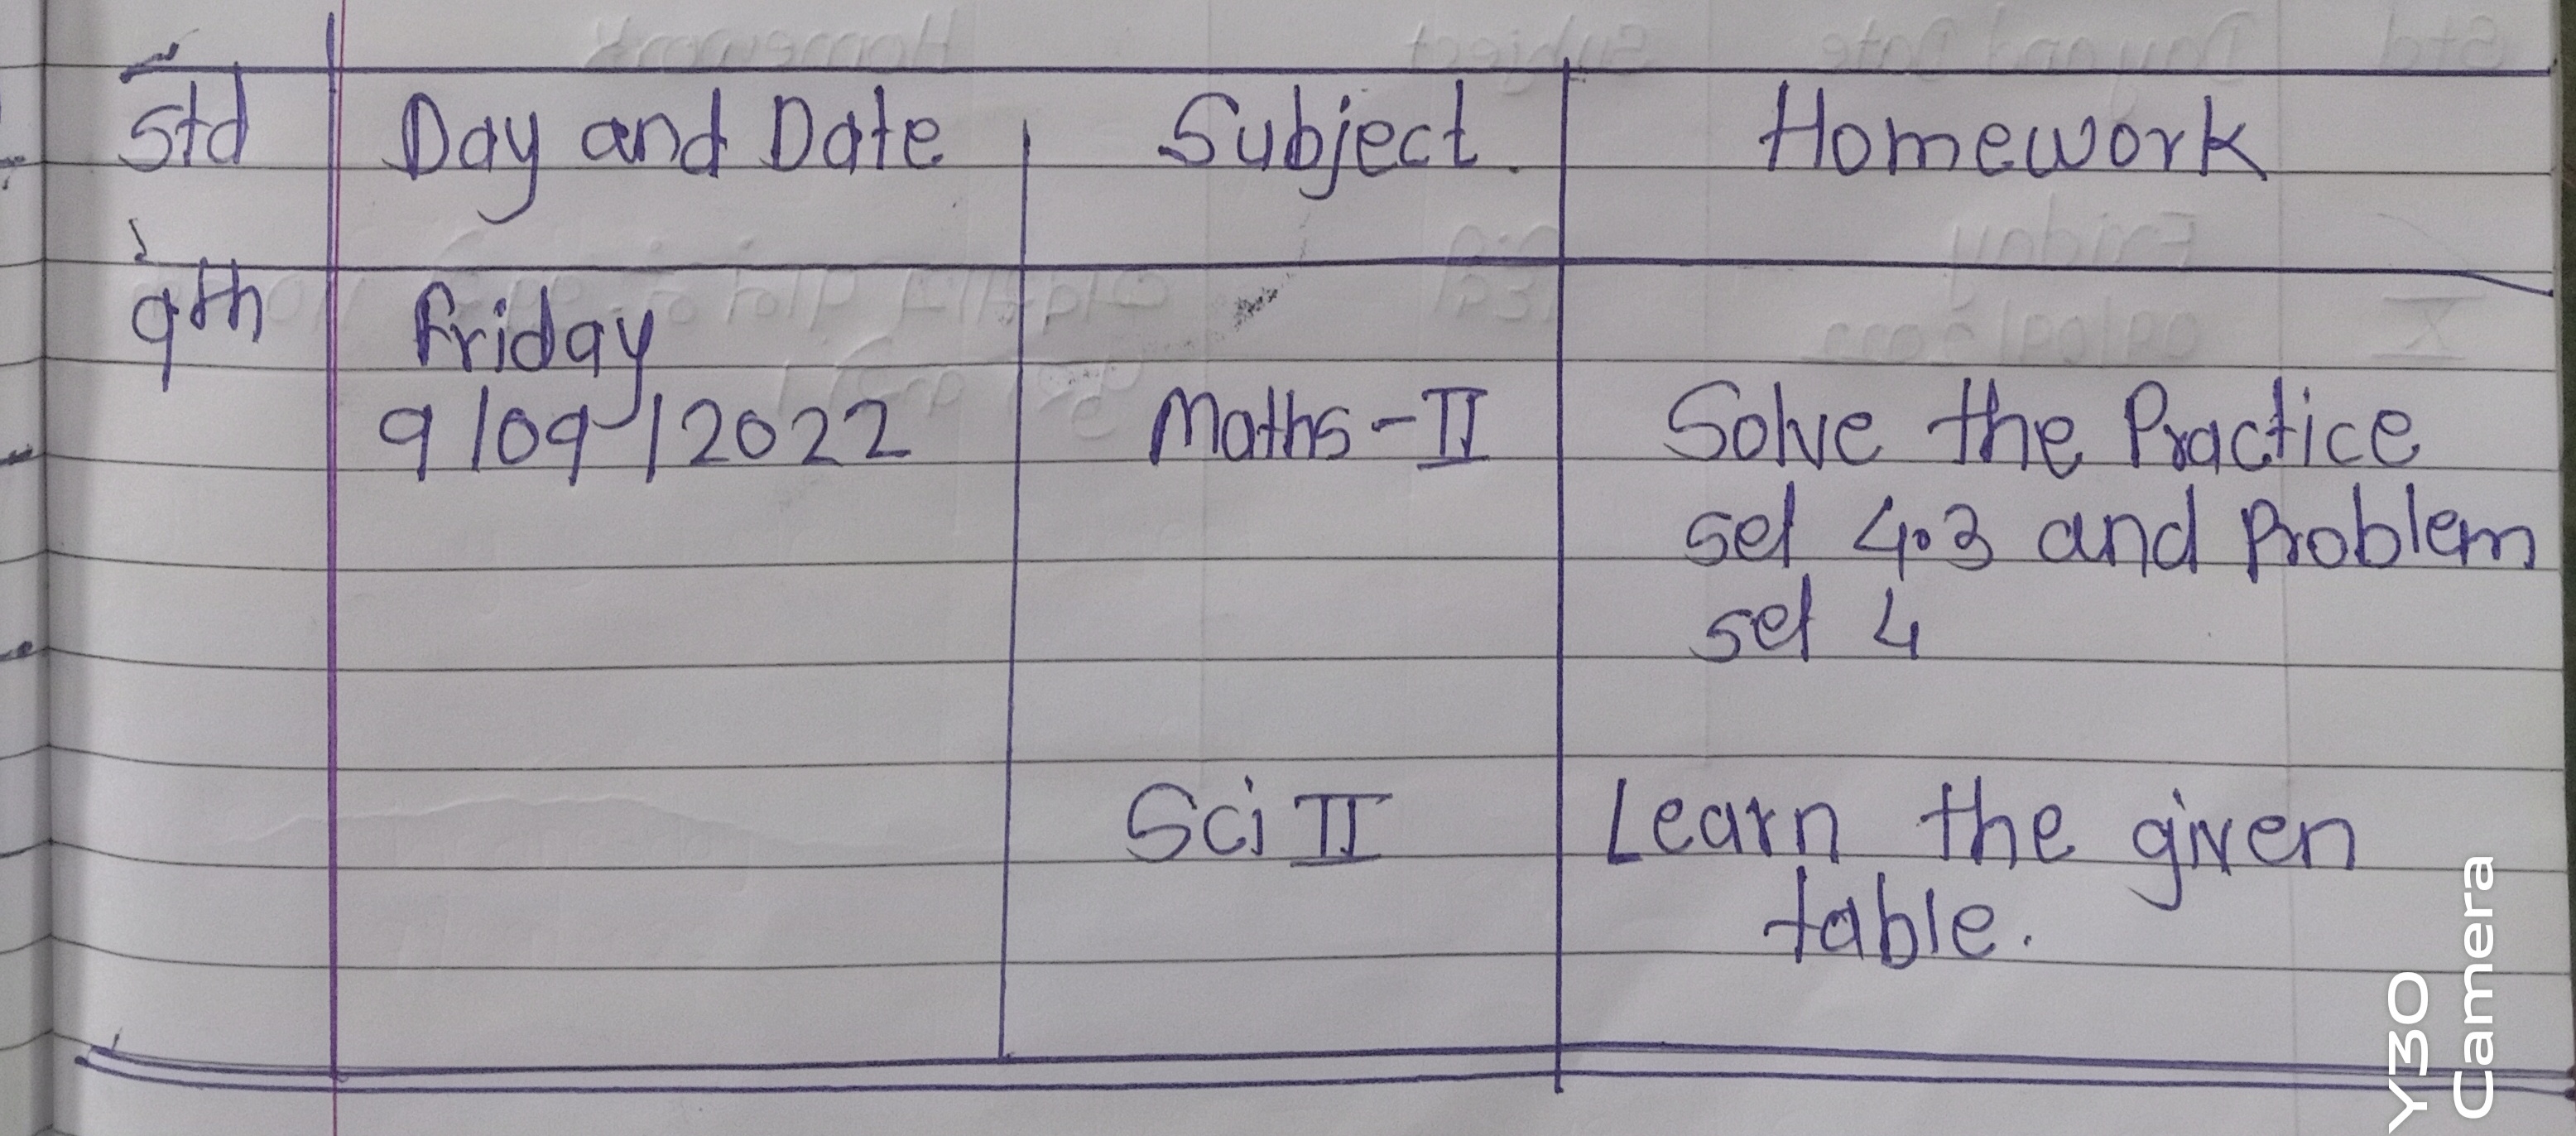 Std Day and Date Subject. Homework
9th Friday
9/09/2022 Maths-II Solve the Practice
set 4.3 and Problem
set 4
Sci II Learn the given
table.
Y30
Camera